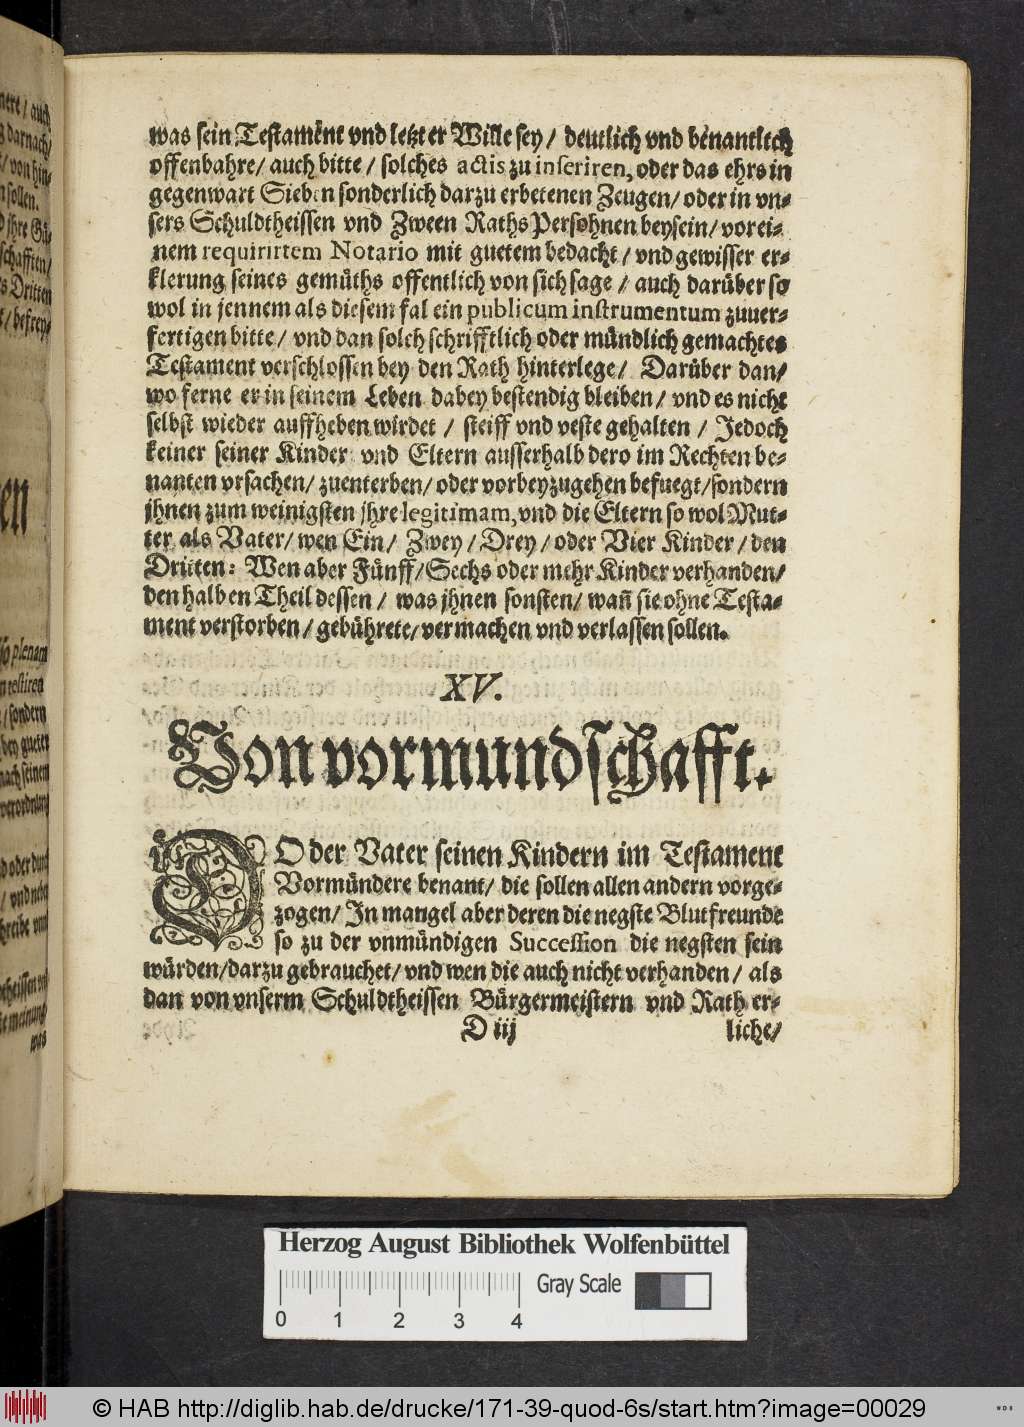 was sein Testament vnd letzter Wille sey / deutlich vnd benantlich
offenbahre / auch bitte / solches actis zu inseriren, oder das ehrs in
gegenwart Sieben sonderlich darzu erbetenen Zeugen / oder in vn⸗
sers Schuldtheissen vnd Zween Raths Persohnen beysein / vor ei⸗
nem requirirtem Notario mit guetem bedacht / vnd gewisser er⸗
klerung seines gemüths offentlich von sich sage / auch darüber so
wol in jennem als diesem fal ein publicum instrumentum zuuer⸗
fertigen bitte / vnd dan solch schrifftlich oder mündlich gemachtes
Testament verschlossen bey den Rath hinterlege / Darüber dan /
wo ferne er in seinem Leben dabey bestendig bleiben / vnd es nicht
selbst wieder auffheben wirdet / steiff vnd veste gehalten / Jedoch
keiner seiner Kinder vnd Eltern ausserhalb dero im Rechten be⸗
nanten vrsachen / zuenterben / oder vorbeyzugehen befuegt / sondern
jhnen zum weinigsten jhre legitimam, vnd die Eltern so wol Mut⸗
ter als Vater / wen Ein / Zwey / Drey / oder Vier Kinder / den
Dritten: Wen aber Fünff / Sechs oder mehr Kinder verhanden /
den halben Theil dessen / was jhnen sonsten / wañ sie ohne Testa⸗
ment verstorben / gebührete / vermachen vnd verlassen sollen.
XV.
Von vormundschafft.
WO der Vater seinen Kindern im Testament
Vormündere benant / die sollen allen andern vorge⸗
zogen / In mangel aber deren die negste Blutfreunde
so zu der vnmündigen Succession die negsten sein
würden / darzu gebrauchet / vnd wen die auch nicht verhanden / als
dan von vnserm Schuldtheissen Bürgermeistern vnd Rath er⸗
D iij liche /
Herzog August Bibliothek Wolfenbüttel
Gray Scale
0 1 2 3 4
© HAB http://diglib.hab.de/drucke/171-39-quod-6s/start.htm?image=00029